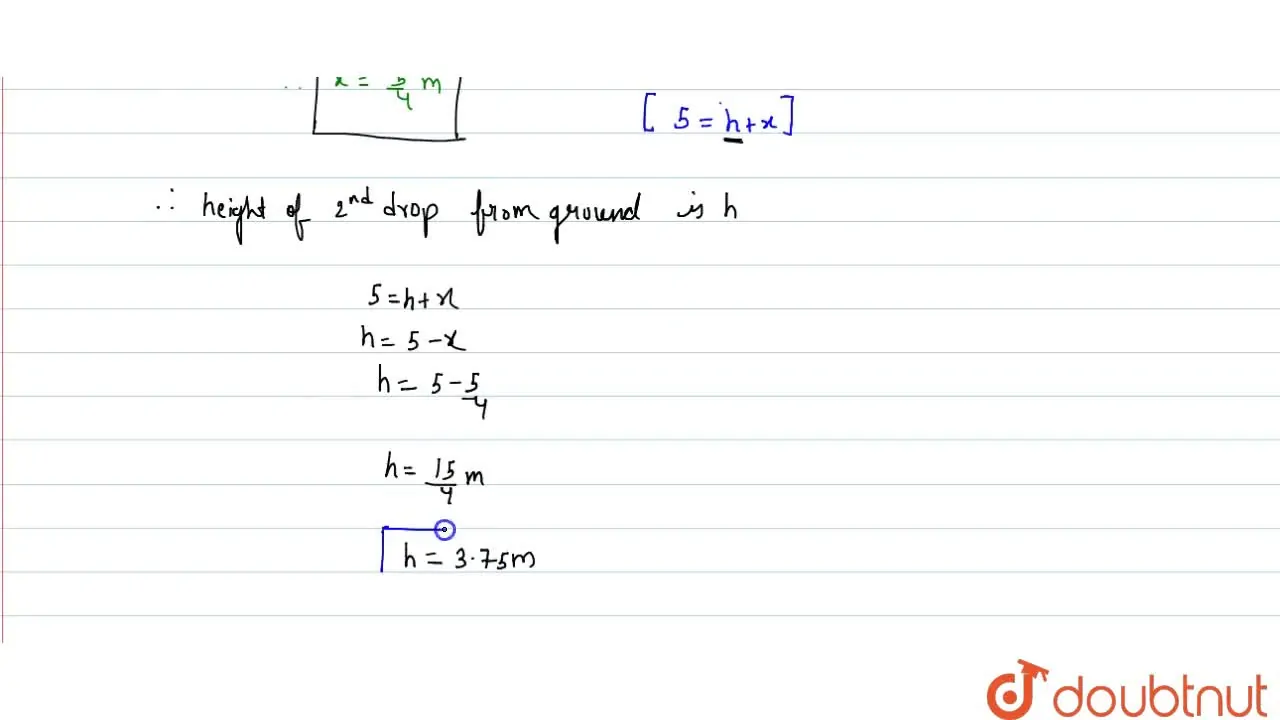 ∴ x = 5/4 m
[ 5 = h + x ]
∴ height of 2nd drop from ground is h
5 = h + x
h = 5 - x
h = 5 - 5/4
h = 15/4 m
h = 3.75m
doubtnut